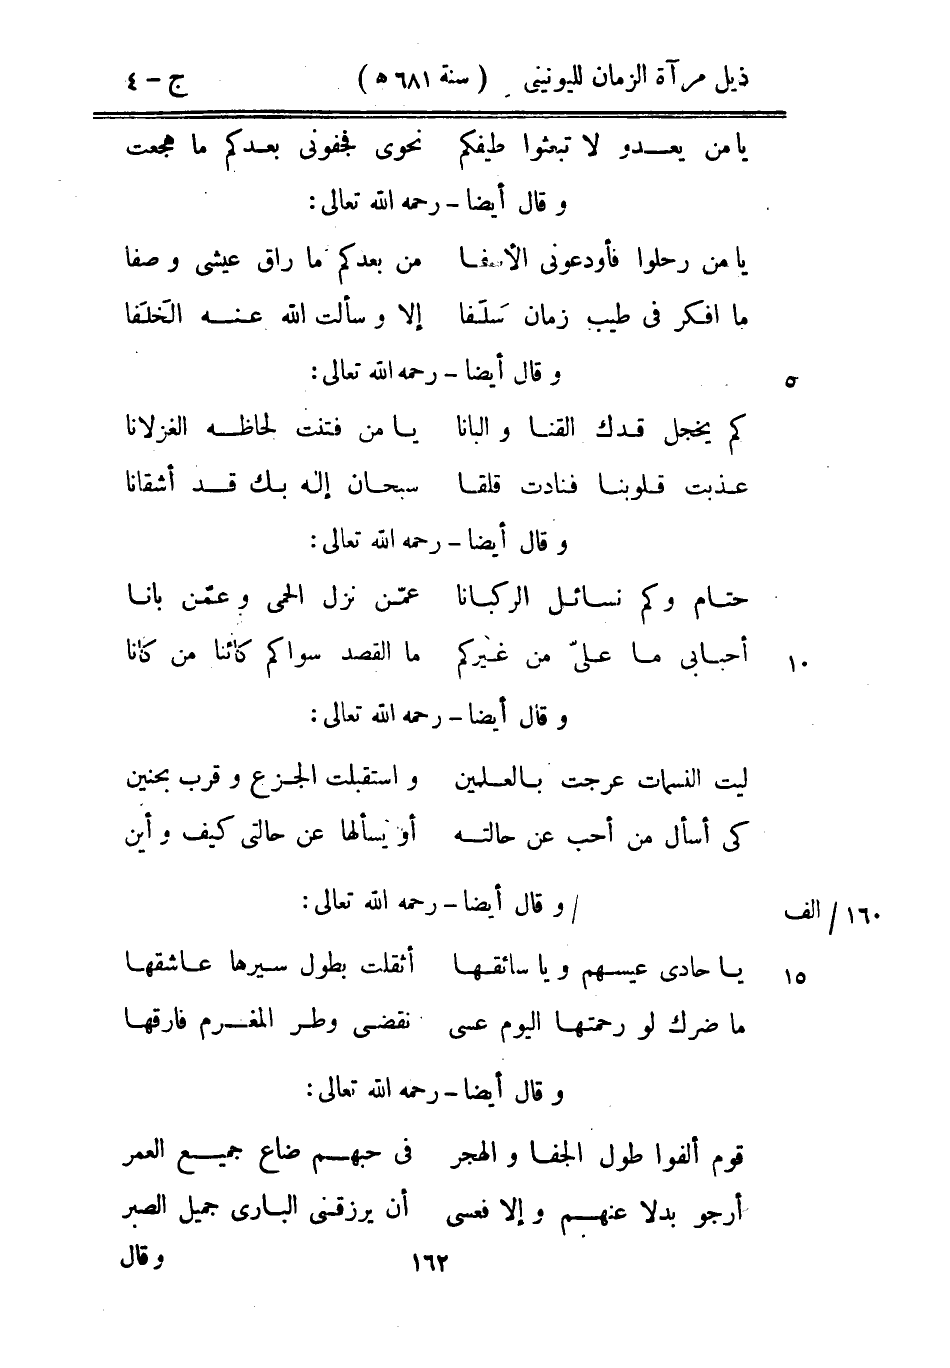 ذيل مرآة الزمان لليونينى ( سنة ٦٨١ ه ) ج – ٤
يا من يعــدو لا تبعثوا طيفكم نحوى فجفونى بعدكم ما هجعت
و قال أيضا – رحمه الله تعالى :
يا من رحلوا فأودعونى الأسفـا من بعدكم ما راق عيشى و صفا
ما افكر فى طيب زمان سَلَفا إلا و سألت الله عنــه الخَلَفا
و قال أيضا – رحمه الله تعالى : ٥
كم يخجل قدك القنـا و البانا يـا من فتنت لحاظــه الغزلانا
عـذبت قلوبنـا فنادت قلقـا سبحـان إله بـك قــد أشقانا
و قال أيضا – رحمه الله تعالى :
حتـام وكم نسـائـل الركبانا عمّـن نزل الحمى و عمّن بانـا
أحبـابى مـا علىّ من غيركم ما القصد سواكم كائنا من كانا ١٠
و قال أيضا – رحمه الله تعالى :
ليت النسمات عرجت بـالعـلمين و استقبلت الجـزع و قرب بحنين
كى أسأل من أحب عن حالتــه أو يسألها عن حالتى كيف و أين
/ و قال أيضا – رحمه الله تعالى : ١٦٠ / الف
يـا حادى عيسـهم و يا سائقـهـا أثقلت بطول سـيرها عـاشقهـا ١٥
ما ضرك لو رحمتهـا اليوم عسى نقضى وطـر المغـرم فارقهـا
و قال أيضا – رحمه الله تعالى :
قوم ألفوا طول الجفـا و الهجر فى حبهـم ضاع جميـع العمر
أرجو بدلا عنهـم و إلا فعسى أن يرزقـنى البـارى جميل الصبر
١٦٢ و قال